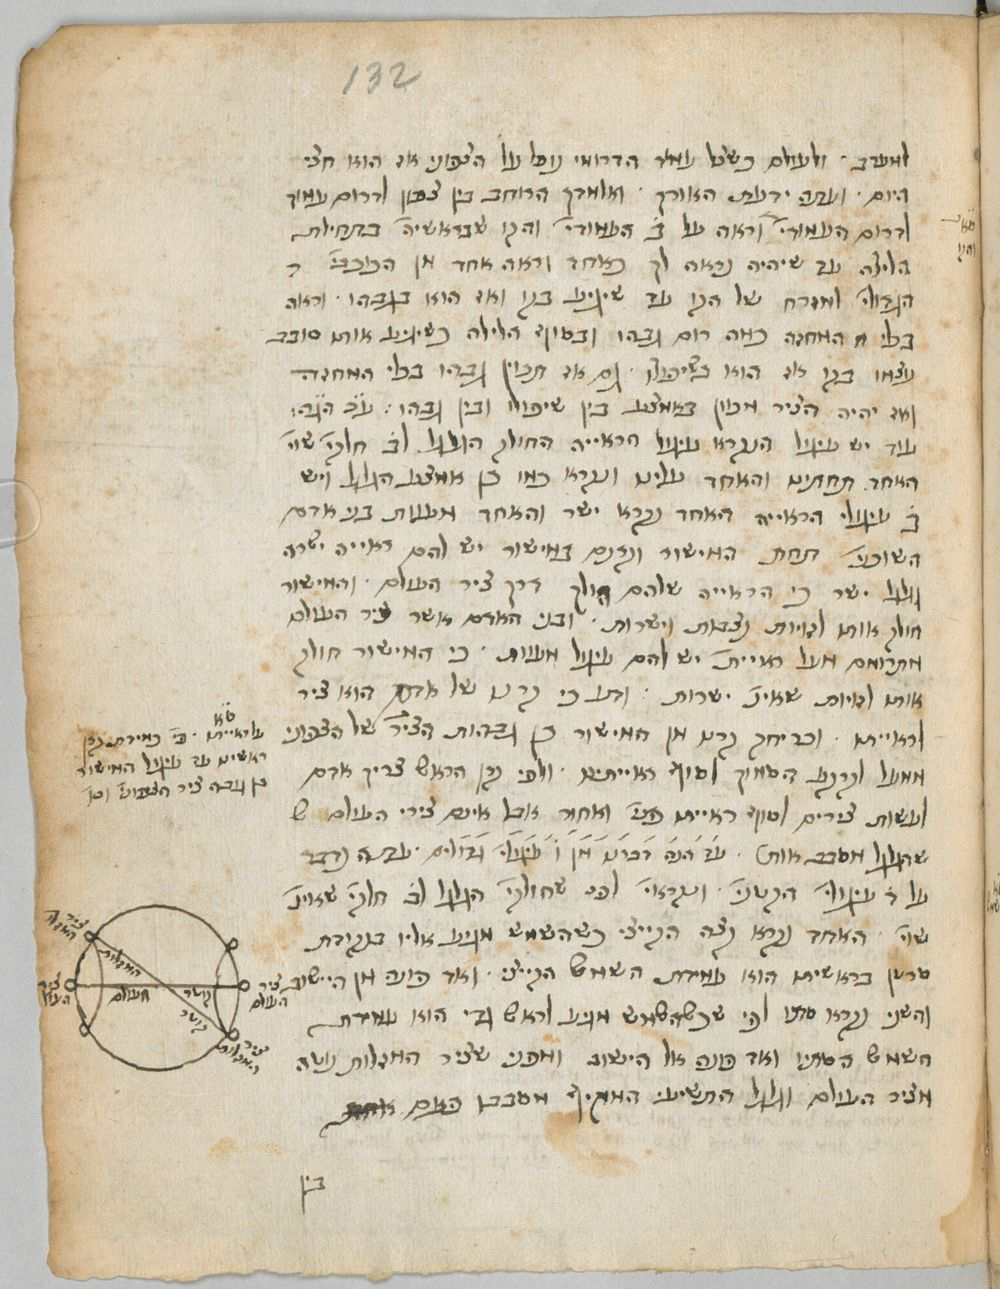 132
למערב · ולעולם כשצל עומד הדרומי נופל על הצפוני אז הוא חצי
היום · ועתה ידעת האורך · ואלמדך הרוחב בין צפון לדרום עמוד
לדרום העמודי׳ וראה על ב׳ העמודי׳ והקו שבראשיה׳ בתחילת
הלילה עד שיהיה נראה לך כאחד וראה אחד מן הכוכבי׳
הגדולי׳ למזרח של הקו עד שיגיע בקו ואז הוא בגבהו · וראה
בכלי המחזה כמה רום גבהו ובסוף הלילה כשיגיע אותו סובב
עצמו בקו אז הוא בשיפולו · גם אז תכוין גבהו בכלי המחזה
ואז יהיה הציר מכוון באמצע בין שיפולו ובין גבהו : ע״כ הגה״ה
עוד יש עיגול הנקרא עיגול הראייה החולק הגלגל לב׳ חלקי׳ שוי׳
האחד תחתים והאחד עלים ונקרא כמו כן אמצע הגלגל ויש
ב׳ עיגולי הראייה האחד נקרא ישר והאחד מעוות בני אדם
השוכני׳ תחת המישור וגרים במישור יש להם ראייה ישרה
גלגל ישר כי הראייה שלהם הולך דרך ציר העולם · והמישור
חולק אותו לזויות נצבות וישרות · ובני האדם אשר ציר העולם
מתרומם מעל ראיית׳ יש להם עיגול מעוות · כי המישור חולק
אותו לזויות שאינ׳ ישרות · ודע כי קרקע של אדם הוא ציר
לראייתו · וכריחק קרקע מן המישור כן גבהות הציר של הצפוני
ממעל לקרקע הסמוך לסוף ראייתם · ולפי קרן הראש צריך אדם
לעשות צירים לסוף ראייתו פני׳ ואחור אבל אינם צירי העולם ש
שהגלגל מסבב אותו · עד הנה דברנו מן ו׳ עיגולי׳ גדולים · עתה נדבר
על ד׳ עיגולי׳ הקטני׳ · ונקראי׳ לפי׳ שחולקי׳ הגלגל לב׳ חלקי׳ שאינ׳
שוי׳ · האחד נקרא נצה הקייצי כשהשמש מגיע אליו בנקודת
סרטן בראשית הוא עמידת השמש הקייצי · ואז פונה מן היישוב
והשני נקרא סתוי לפי שכשהשמש מגיע לראש גדי הוא עמידת
השמש הסתוי ואז פונה אל הישוב ומפני שציר המזלות נוטה
מציר העולם וגלגל התשיעי המקיף מסבבן פעם אחת
בין
ס״א
על ראייתם · כי כמידת קרן
ראשים עד עיגול המישור
כן גובה ציר הצפוני וכו׳
ציר
המזלות
ציר
העולם
המזלות
קוטר
העולם
קוטר
ציר
העולם
ציר
המזלות
ס״א
והקו